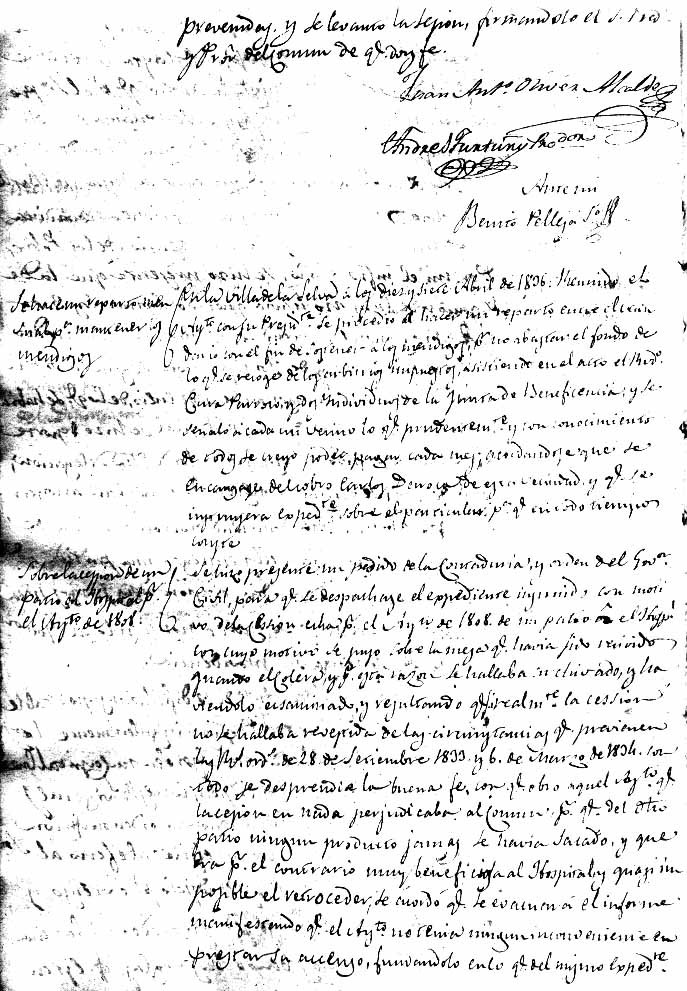 prevenidas. y se levanto la sesion, firmandolo el S. Prd
y Pror. del Comun de q. doy fe.
Juan Anto. Oliver Alcalde
Andres Furtuny Prodor
Antemi
Benito Pelleja So.
Se hace un reparto, men
sual pa. mantener los
mendigos
En la Villa de la Selva a los diez y siete Abril de 1836. Reunido el
Ayto. con su Preste. Se procedio al hacer un reparto entre el vecin
dario con el fin de sostener a los mendigos, pr. no abastar el fondo de
lo q. se recoge de los arbitrios impuestos, asistiendo en el acto el Rdo.
Cura Parroco, y dos Individuos de la Junta de Beneficencia; y se
señaló á cada un vecino lo q. prudentemte. y con conocimiento
de todos se creyo poder pagar cada mes; acordandose que se
encargase del cobro Carlos de esta vecindad, y q. se
instruyera expedte. sobre el particular, pa. q. en todo tiempo
conste
Sobre la cesion de un
patio al Hospital pr.
el Ayto. de 1808.
Se hizo presente un pedido de la Contaduria, y orden del Govor.
Civil, para q. se despachase el expediente instruido con moti
vo de la Cesion echa pr. el Ayto. de 1808. de un patio el Hospil
con cuyo motivo se puso sobre la mesa q. havia sido recivido
quando el Colera, y pr. esta razon se hallaba archivado, y ha
viendolo ecsaminado, y resultando q. si realmte. la cession
no se hallaba revestida de las circunstancias q. previenen
las Rs. ords. de 28 de Setiembre 1833 y 6. de Marzo de 1834. con
todo se desprendia la buena fe, con q. obro aquel Ayto. q.
la cesion en nada perjudicaba al Comun pr. q. del dho
patio ningun producto jamas se havia sacado, y que
era pr. el contrario muy beneficiosa al Hospital, y quasi im
posible el retroceder, se acordó q. se evacuará el informe
manifestando q. el Ayto. no tenia ningun inconveniente en
prestar su accenso, fundandolo en lo q. del mismo Expedte.